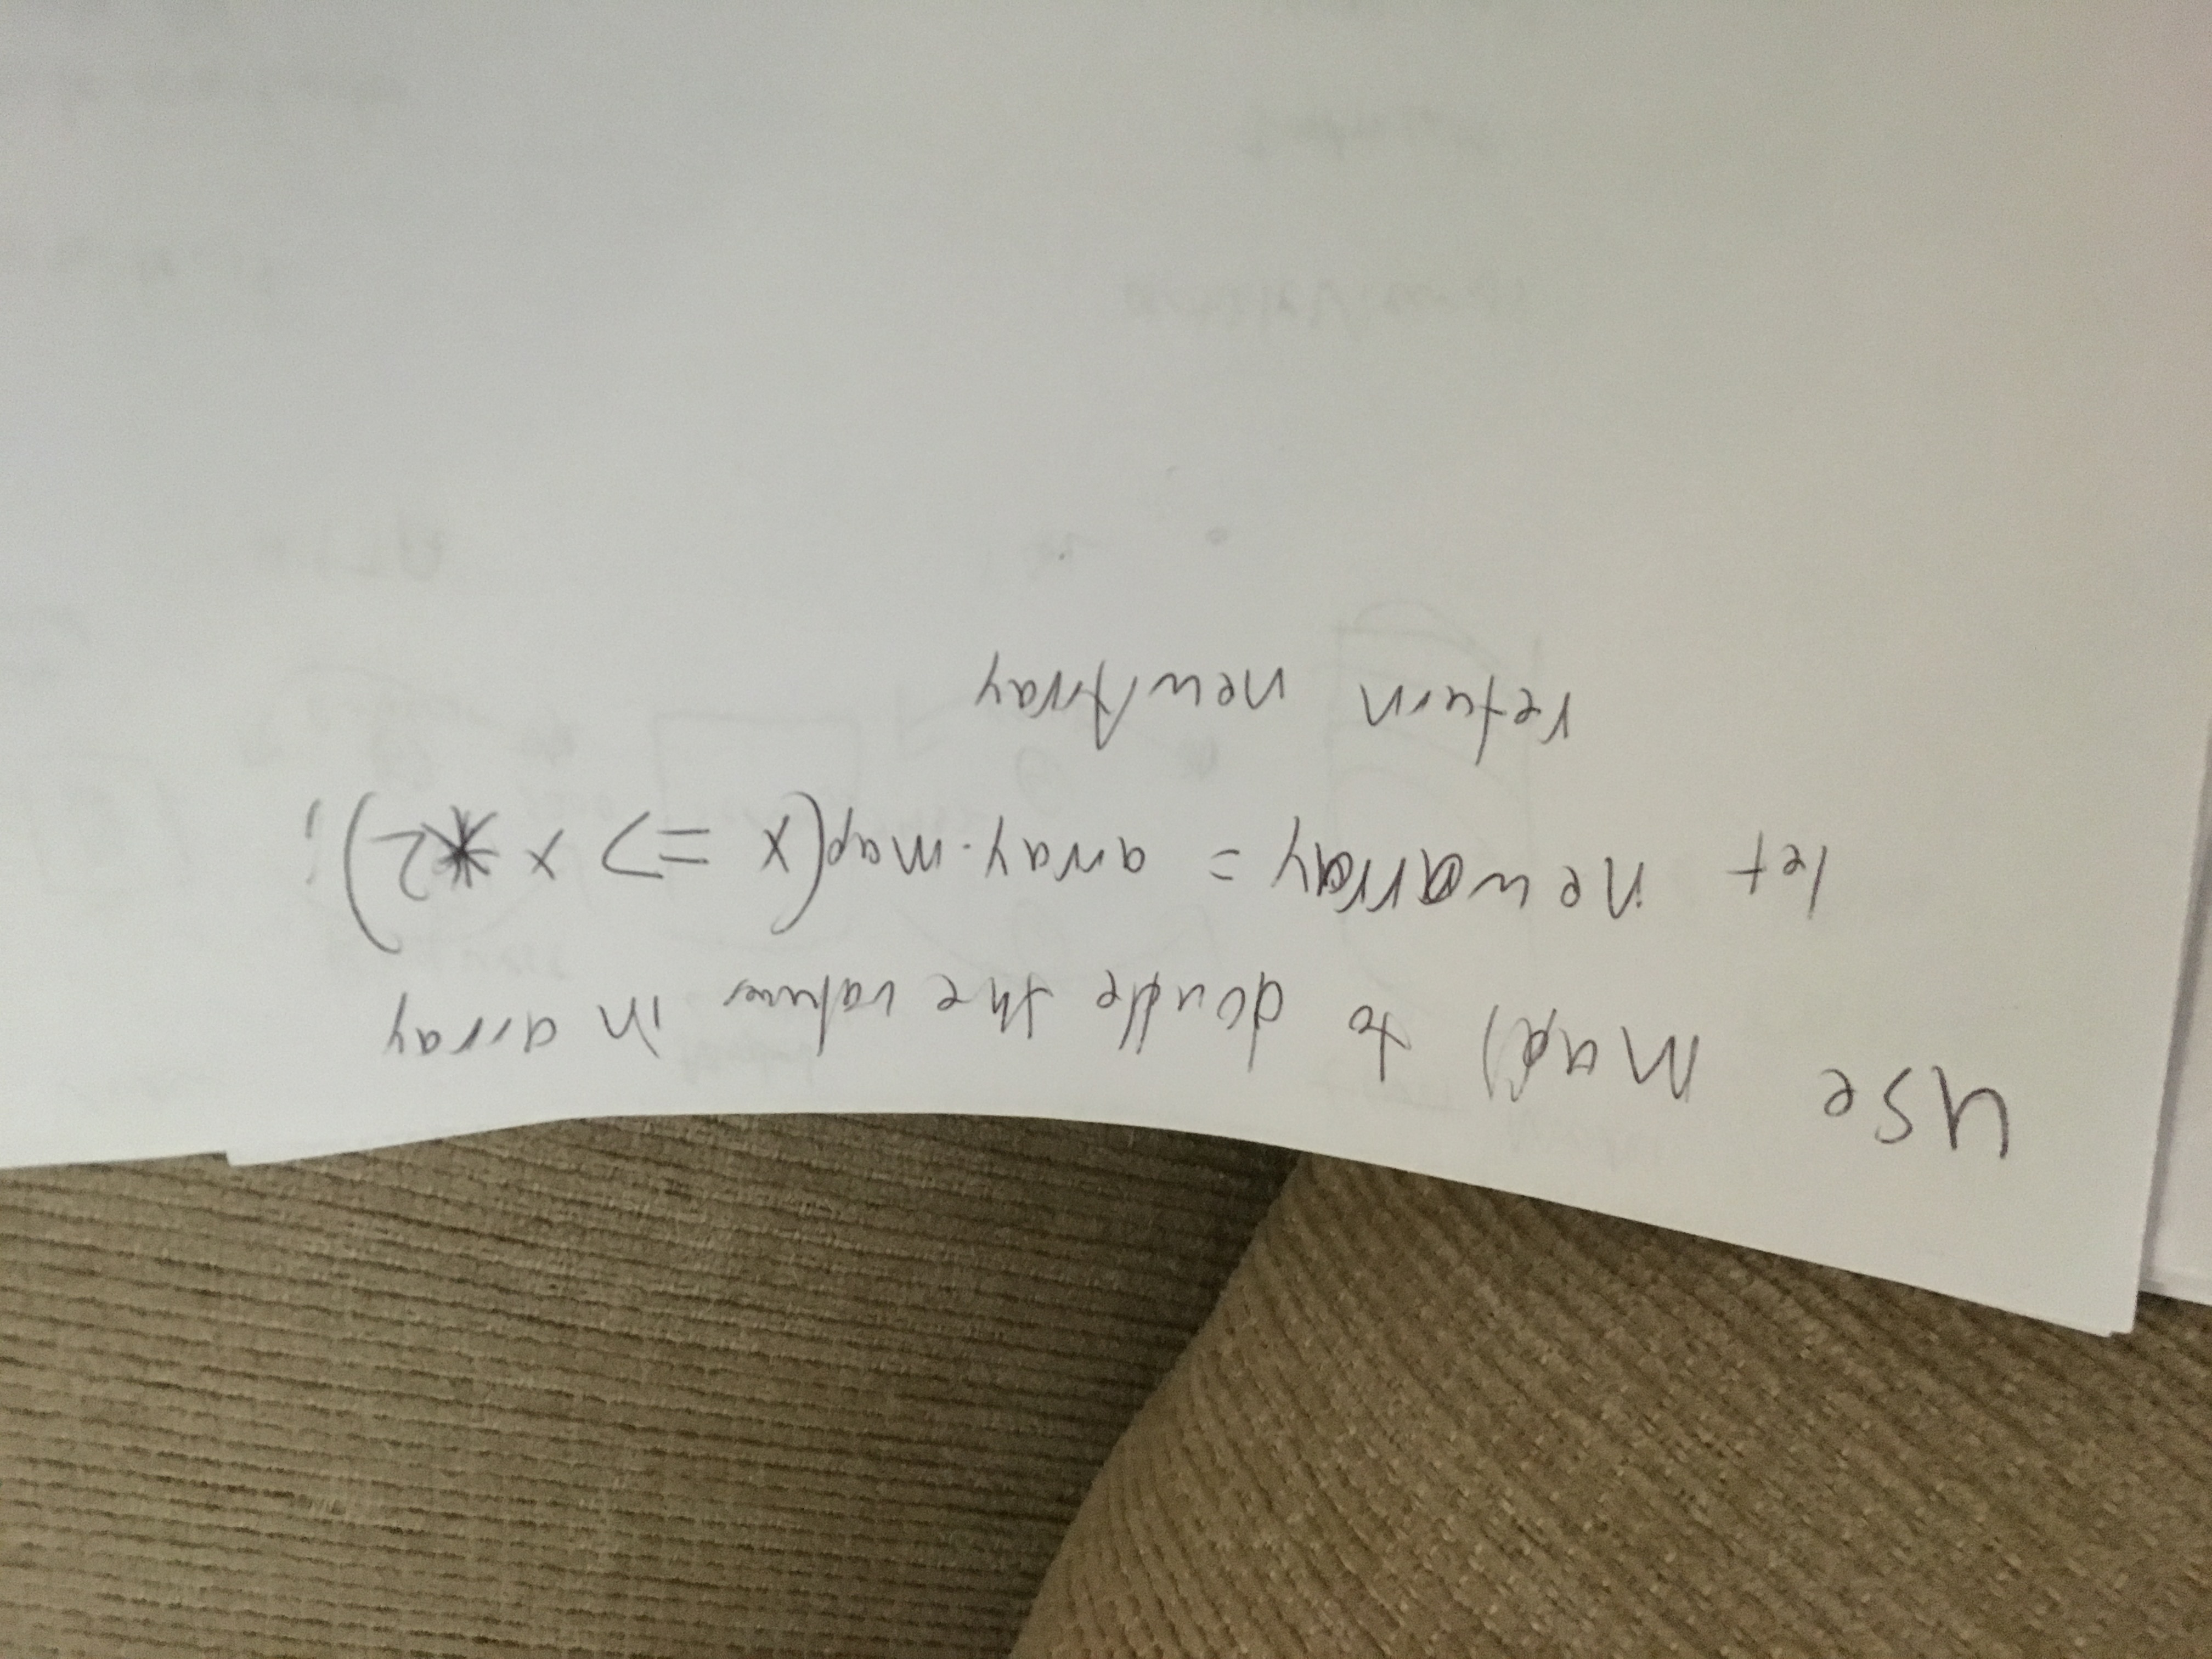 use map() to double the values in array
let newarray = array.map(x => x *2);
return newArray